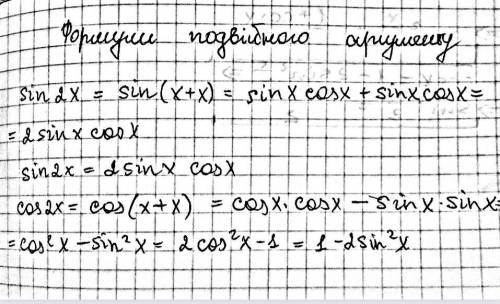 Формули подвійного аргументу
sin2x = sin(x+x) = sinx cosx + sinx cosx =
= 2sinx cosx
sin2x = 2sinx cosx
cos2x = cos(x+x) = cosx·cosx − sinx·sinx=
=cos²x − sin²x = 2cos²x−1 = 1−2sin²x